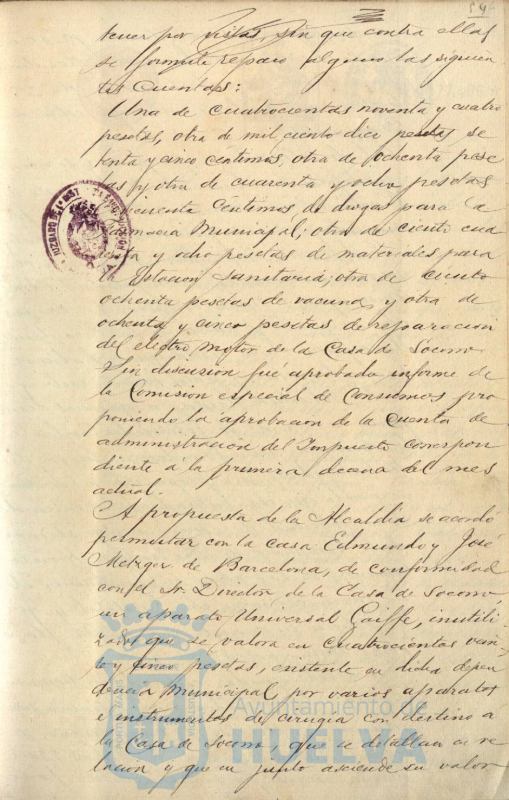 tener por vistas, sin que contra ellas
se formule reparo alguno las siguien
tes cuentas:
Una de cuatrocientas noventa y cuatro
pesetas, otra de mil ciento diez pesetas se
tenta y cinco centimos, otra de ochenta pese
tas y otra de cuarenta y ocho pesetas
cincuenta centimos de drogas para la
farmacia Municipal; otra de ciento cua
renta y ocho pesetas de materiales para
la Estacion Sanitaria; otra de ciento
ochenta pesetas de vacuna, y otra de
ochenta y cinco pesetas de reparacion
del electro motor de la Casa de Socorro
Sin discusion fué aprobado informe de
la Comision especial de Consumos pro
poniendo la aprobacion de la cuenta de
administracion del Impuesto correspon
diente á la primera decena del mes
actual.
A propuesta de la Alcaldia se acordó
permutar con la casa Edmundo y José
Metzger de Barcelona, de conformidad
con el Sr. Director de la Casa de Socorro
un aparato Universal Gaiffe, inutili
zado que se valora en cuatrocientas vein
te y cinco pesetas, existente en dicha depen
dencia Municipal, por varios aparatos
e instrumentos de cirugia con destino á
la Casa de Socorro, que se detallan en re
lacion y que en junto asciende su valor
JUZGADO DE 1ª INST
Ayuntamiento de
HUELVA